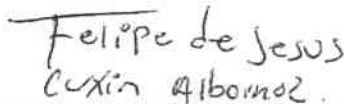 Felipe de Jesus
Cuxin Albornoz.